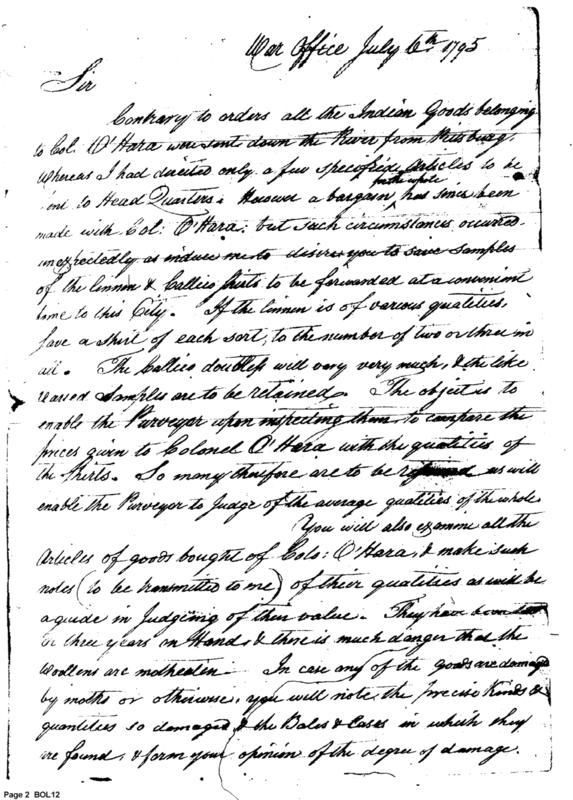 War Office July 6th 1795
Sir
Contrary to orders all the Indian Goods belonging
to Col. O'Hara were sent down the River from Pittsburg,
Whereas I had directed only a few specified Articles to be
sent to Head Quarters: However a bargain for the whole has since been
made with Col: O'Hara: but such circumstances occurred
unexpectedly as induce me to desire you to save samples
of the linnen & Callico Shirts to be forwarded at a convenient
time to this City. If the linnen is of various qualities,
save a shirt of each sort, to the number of two or three in
all. The Callico doubtless will vary very much, & the like
varied Samples are to be retained. The object is to
enable the Purveyor upon inspecting them, to compare the
prices given to Colonel O'Hara with the qualities of
the Shirts. So many therefore are to be as will
enable the Purveyor to Judge of the average qualities of the whole
You will also examine all the
Articles of goods bought of Colo: O'Hara, & make such
notes (to be transmitted to me) of their qualities as will be
a guide in Judgeing of their value. They have been two
or three years on Hand, & there is much danger that the
Woollens are motheaten. In case any of the goods are damaged
by moths or otherwise, you will note the precise Kinds &
quantities so damaged & the Bales & Cases in which they
are found, & form your opinion of the degree of damage.
Page 2 BOL12